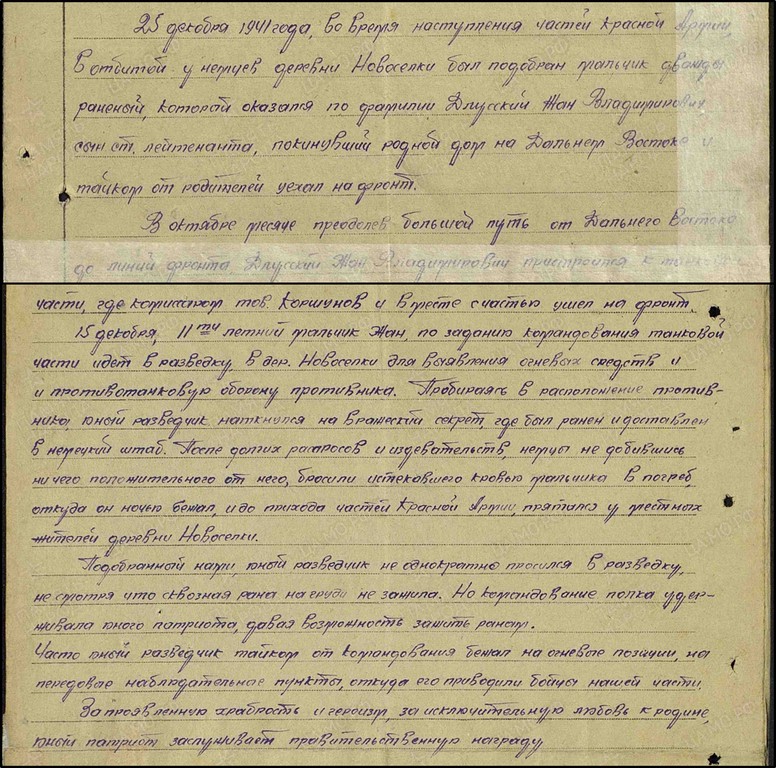 25 декабря 1941 года, во время наступления частей Красной Армии,
В отбитой у немцев деревни Новоселки был подобран мальчик дважды
раненый, которой оказался по фамилии Длусский Жан Владимирович
сын ст. лейтенанта, покинувший родной дом на Дальнем Востоке и
тайком от родителей уехал на фронт.
В октябре месяце преодолев большой путь от Дальнего Востока
до линий фронта Длусский Жан Владимирович пристроился к танковой
части, где комиссаром тов. Коршунов и вместе с частью ушел на фронт.
15 декабря, 11ти летний мальчик Жан, по заданию командования танковой
части идет в разведку, в дер. Новоселки для выявления огневых средств и
и противотанковую оборону противника. Пробираясь в расположение против-
ника, юный разведчик наткнулся на вражеский секрет, где был ранен и доставлен
в немецкий штаб. После долгих распросов и издевательств, немцы не добившись
ни чего положительного от него, бросили истекавшего кровью мальчика в погреб,
откуда он ночью бежал, и до прихода частей Красной Армии, прятался у местных
жителей деревни Новоселки.
Подобранный нами, юный разведчик не однократно просился в разведку,
не смотря что сквозная рана на груди не зажила. Но командование полка удер-
живала юного патриота, давая возможность зажить ранам.
Часто юный разведчик тайком от командования бежал на огневые позиции, на
передовые наблюдательные пункты, откуда его приводили бойцы нашей части.
За проявленную храбрость и героизм, за исключительную любовь к родине,
юный патриот заслуживает правительственную награду